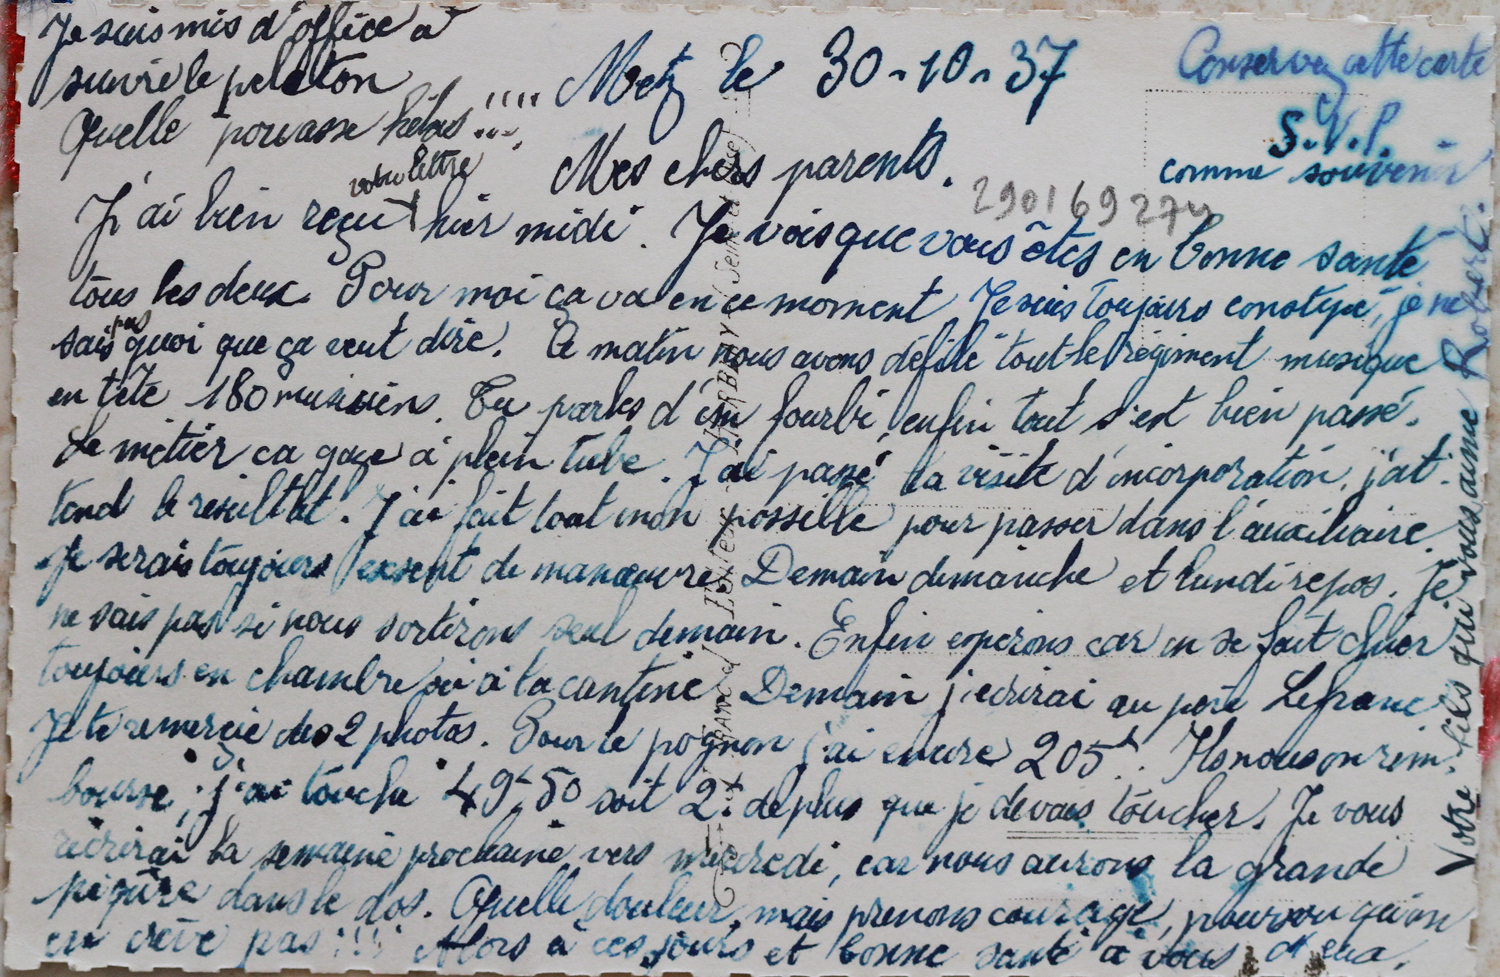 Je suis mis d'office à
suivre le peloton
Quelle poivasse hélas !!!!
Metz le 30-10-37
Conservez cette carte
S.V.P.
comme souvenir
Mes chers parents.
290169274
J'ai bien reçu votre lettre hier midi. Je vois que vous êtes en bonne santé
tous les deux. Pour moi ça va en ce moment Je suis toujours constipé, je ne
sais pas quoi que ça veut dire. Ce matin nous avons défilé tout le régiment musique
en tête 180 musiciens. Tu parles d'un fourbi, enfin tout s'est bien passé.
Le métier ca gaze à plein tube. J'ai passé la visite d'incorporation, j'at-
tend le resultat. J'ai fait tout mon possille pour passer dans l'auxiliaire.
Je serais toujours exsent de manœuvre. Demain dimanche et lundi repos. Je
ne sais pas si nous sortirons seul demain. Enfin esperons car on se fait chier
toujours en chambre ou à la cantine. Demain j'ecrirai au père Lefranc
Je te remercie des 2 photos. Pour le pognon j'ai encore 205f. Ils nous on rem-
boursé, j'ai touché 49f50 soit 2f de plus que je devais toucher. Je vous
réecrirai la semaine prochaine vers mercredi, car nous aurons la grande
piqûre dans le dos. Quelle douleur, mais prenons courage, pourvu qu'on
en crève pas !!! Alors à ces jours et bonne santé à vous d'eux.
Votre fils qui vous aime Robert.